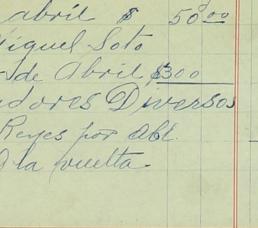 abril $ 50.00
Miguel Soto
de Abril $300
adores Diversos
Reyes por Abl.
A la vuelta.